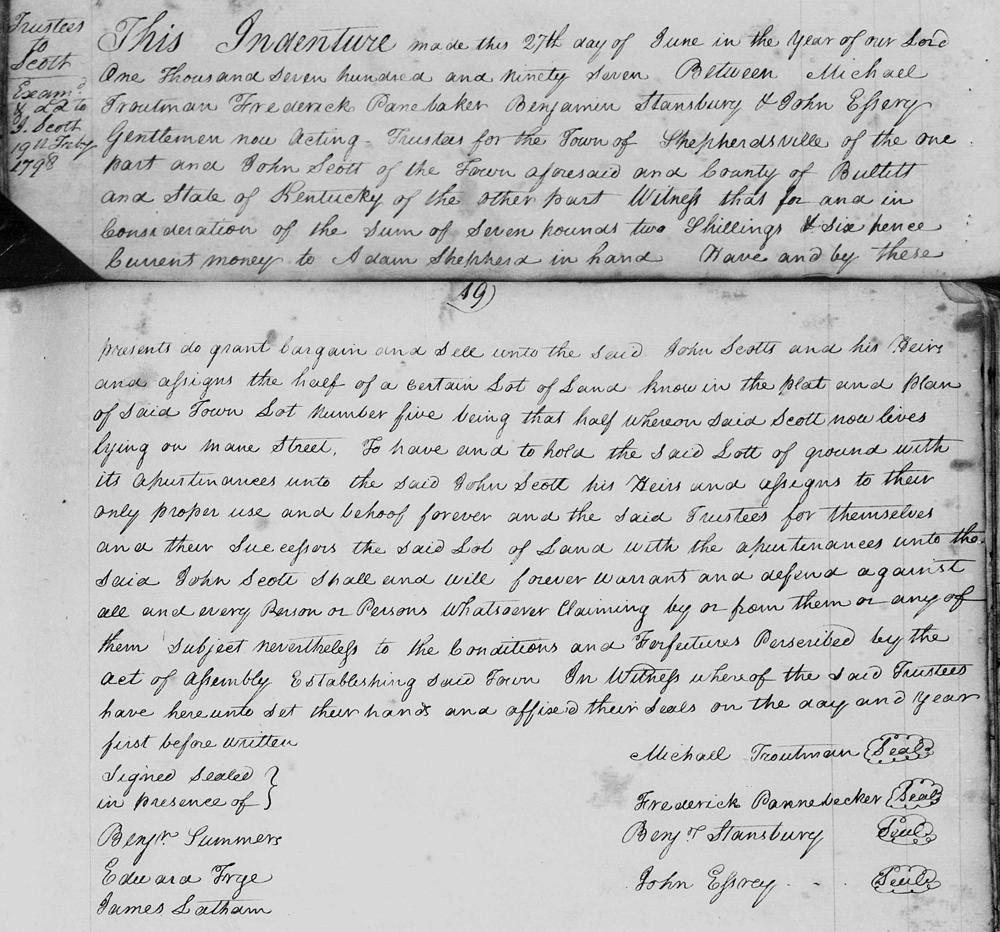 Trustees
to
Scott
Examd.
& dd to
J. Scott
19th Feby
1798
This Indenture made this 27th day of June in the Year of our Lord
One Thousand Seven hundred and ninety seven Between Michael
Troutman Frederick Panebaker Benjamin Stansbury & John Essery
Gentlemen now Acting Trustees for the Town of Shepherdsville of the one
part and John Scott of the Town aforesaid and County of Bullitt
and State of Kentucky of the other part Witness that for and in
Consideration of the Sum of Seven pounds two Shillings & Six pence
Current money to Adam Shepherd in hand Have and by these
19)
presents do grant bargain and Sell unto the Said John Scotts and his Heirs
and assigns the half of a Certain Lot of Land know in the plat and plan
of said Town Lot number five being that half whereon said Scott now lives
lying on mane Street. To have and to hold the said Lott of ground with
its apurtinances unto the said John Scott his Heirs and assigns to their
only proper use and behoof forever and the said Trustees for themselves
and their Successors the said Lot of Land with the apurtinances unto the
said John Scott Shall and will forever warrant and defend against
all and every Person or Persons Whatsoever Claiming by or from them or any of
them Subject nevertheless to the Conditions and Forfeitures Perscribed by the
act of assembly Establishing said Town In Witness whereof the said Trustees
have hereunto set their hands and affixed their Seals on the day and year
first before written
Michael Troutman Seal
Signed Sealed
in presence of
Frederick Pannebecker Seal
Benjn. Summers
Benjn. Stansbury Seal
Edward Frye
John Essrey Seal
James Latham